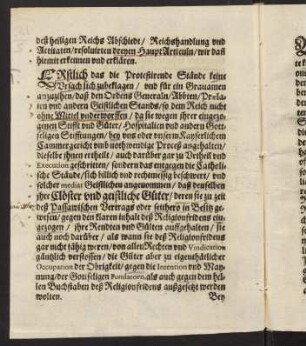 deß heiligen Reichs Abschiedt / Reichshandlung vnd
Actitaten / resoluirten dreyen Haupt Articuln / wir daß
hiemit erkennen vnd erklären.
ERstlich das die Protestirende Stände keine
Vrsach sich zubeklagen / vnd für ein Grauamen
anzuziehen / daß den Ordens Generaln / Äbbten / Präla-
ten vnd andern Geistlichen Stands / so dem Reich nicht
ohne Mittel vnderworffen / da sie wegen ihrer eingezo-
genen Stifft vnd Güter / Hospitalien vnd andern Gott-
seligen Stifftungen / bey vns oder vnserm Kayserlichen
Cammergericht vmb nothwendige Proceß angehalten /
dieselbe jhnen ertheilt / auch darüber gar zu Vrtheil vnd
Execution geschritten / sondern das entgegen die Catholi-
sche Stände / sich billich vnd rechtmessig beschwert / vnd
solcher mediat Geistlichen angenommen / daß denselben
ihre Clöster vnd geistliche Güter / deren sie zu zeit
deß Passawischen Vertrags oder seithero in Besitz ge-
wesen / gegen den klaren inhalt deß Religionfridens ein-
gezogen / ihre Rendten vnd Gülten auffgehalten / sie
auch noch darüber / als wann sie deß Religionfridens
gar nicht fähig weren / von allen Rechten vnd Vindication
gäntzlich verstossen / die Güter aber zu eigenthätlicher
Occupation der Obrigkeit / gegen die Intention vnd May-
nung / der Gottseligen Fundatorn, als auch gegen dem hel-
len Buchstaben deß Religionfridens außgesetzt werden
wolten.
Bey